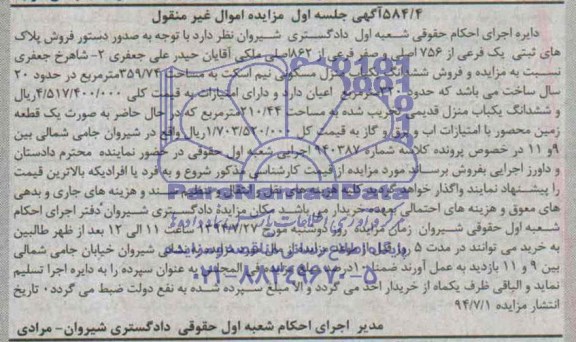 ۵۸۴/۴آگهی جلسه اول مزایده اموال غیر منقول
دایره اجرای احکام حقوقی شعبه اول دادگستری شیروان نظر دارد با توجه به صدور دستور فروش پلاک
های ثبتی یک فرعی از ۷۵۶ اصلی و صفر فرعی از ۸۶۲اصلی ملکی آقایان حیدر علی جعفری ۲- شاهرخ جعفری
نسبت به مزایده و فروش ششدانگ یکباب منزل مسکونی نیم اسکت به مساحت ۳۵۹/۷۴مترمربع در حدود ۲۰
سال ساخت می باشد که حدود مترمربع اعیان دارد و دارای امتیازات به قیمت کلی ۴/۵۱۷/۴۰۰/۰۰۰ریال
و ششدانگ یکباب منزل قدیمی تخریب شده به مساحت ۲۱۰/۴۴مترمربع که در حال حاضر به صورت یک قطعه
زمین محصور با امتیازات اب و برق و گاز به قیمت کل ۱/۷۰۳/۵۲۰/۰۰۰ریال واقع در شیروان جامی شمالی بین
۹و ۱۱ در خصوص پرونده کلاسه شماره ۹۴۰۳۸۷ اجرایی شعبه اول حقوقی در حضور نماینده محترم دادستان
و داورز اجرایی بفروش برساند مورد مزایده از قیمت کارشناسی مذکور شروع و به فرد یا افرادیکه بالاترین قیمت
را پیشنهاد نمایند واگذار خواهد گردید کلیه هزینه های نقل و انتقال و تنظیم سند و هزینه های جاری و بدهی
های معوق و هزینه های احتمالی بعهده خریدار می باشد مکان مزایده دادگستری شیروان دفتر اجرای احکام
شعبه اول حقوقی شیروان زمان مزایده روز دوشنبه مورخ ۱۳۹۴/۷/۲۷ ساعت ۱۱ الی ۱۲ بعد از ظهر طالبین
به خرید می توانند در مدت ۵ روز قبل از مزایده از مال مورد مزایده به نشانی شیروان خیابان جامی شمالی
بین ۹ و ۱۱ بازدید به عمل آورند ضمنا ۱۰درصد فی المجلس به عنوان سپرده را به دایره اجرا تسلیم
نماید و الباقی ظرف یکماه از خریدار اخذ می گردد و الا مبلغ سپرده شده به نفع دولت ضبط می گردد۰ تاریخ
انتشار مزایده ۹۴/۷/۱
مدیر اجرای احکام شعبه اول حقوقی دادگستری شیروان- مرادی
ParsNamadData
۰۲۱-۸۸۳۴۹۶۷۰-۵